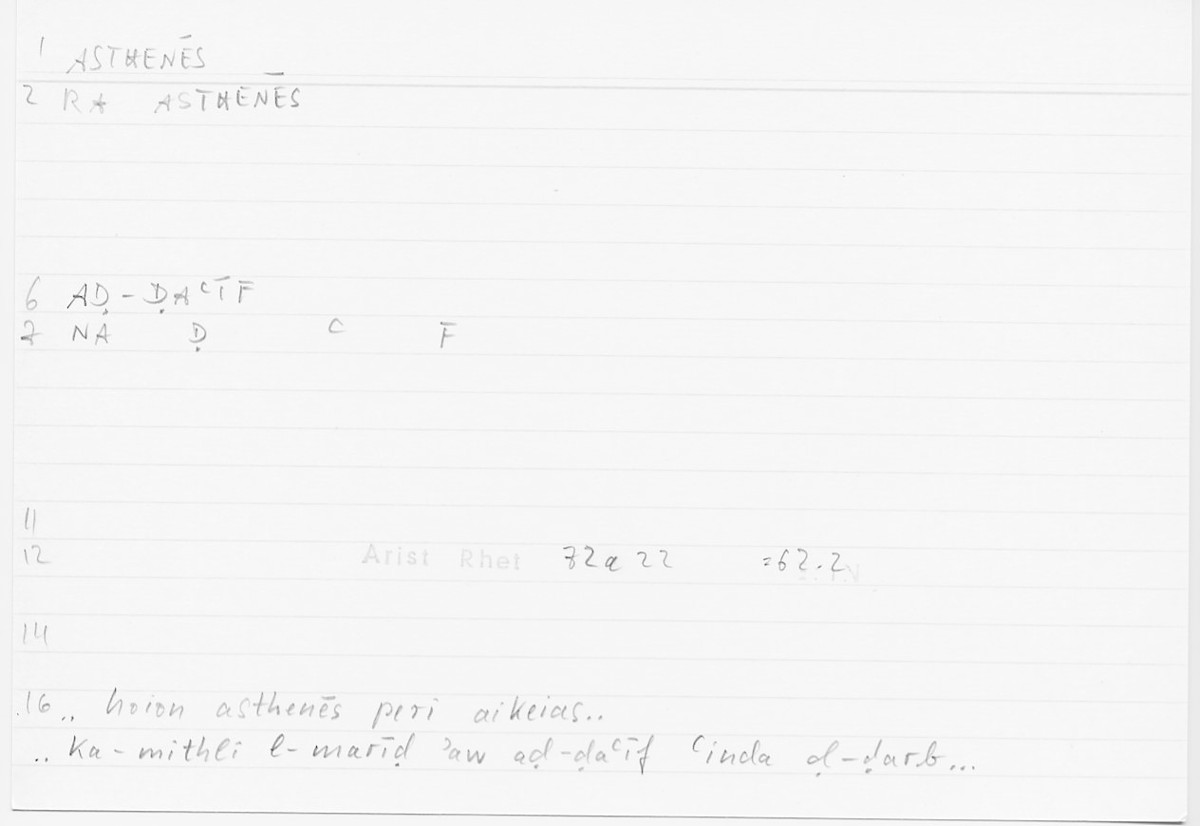 1 ASTHENĒS
2 RA ASTHENĒS
6 AḌ-ḌAʿĪF
7 NA Ḍ ʿ F
11
12 Arist Rhet 72a22 =62.2
14
16 .. hoion asthenēs peri aikeias..
.. ka-mithli l-marīḍ ʾaw aḍ-ḍaʿīf ʿinda ḍ-ḍarb...